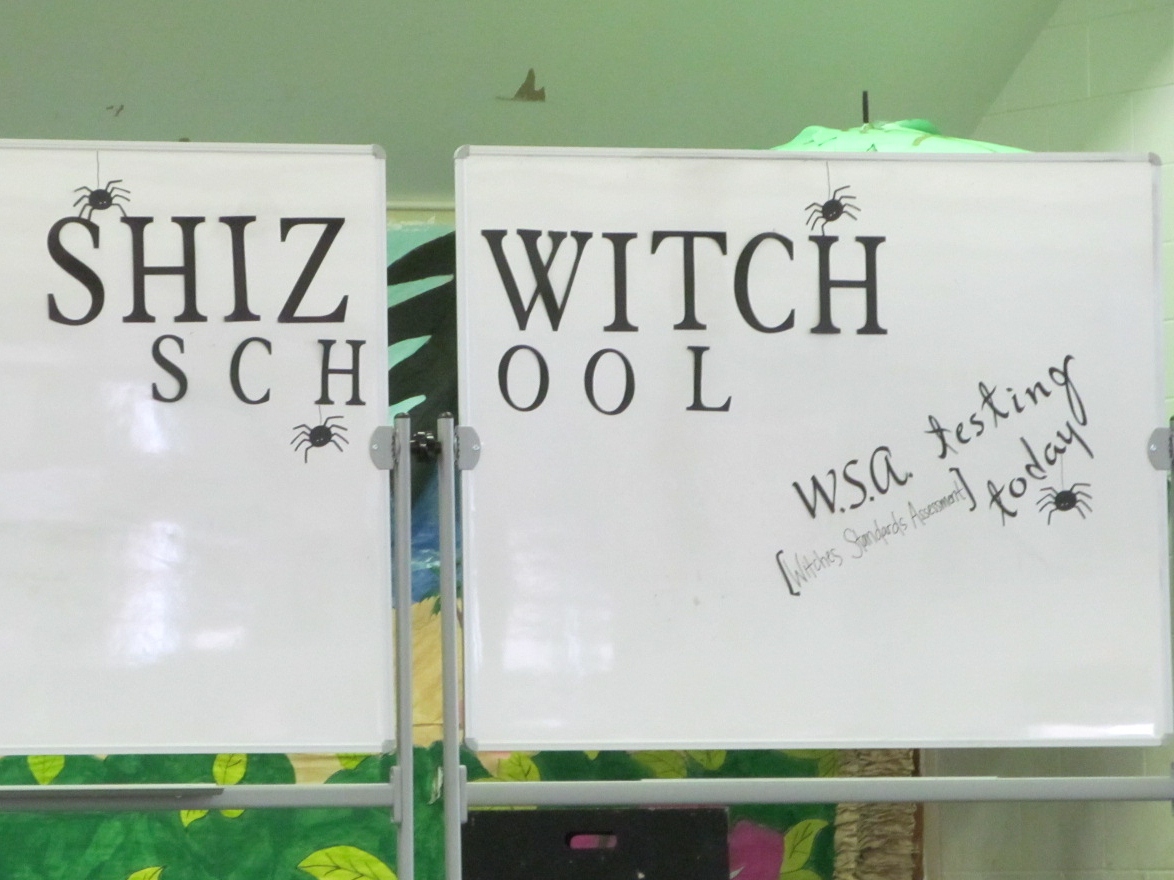 SHIZ WITCH
SCHOOL
W.S.A. testing
[Witches Standards Assessment] today